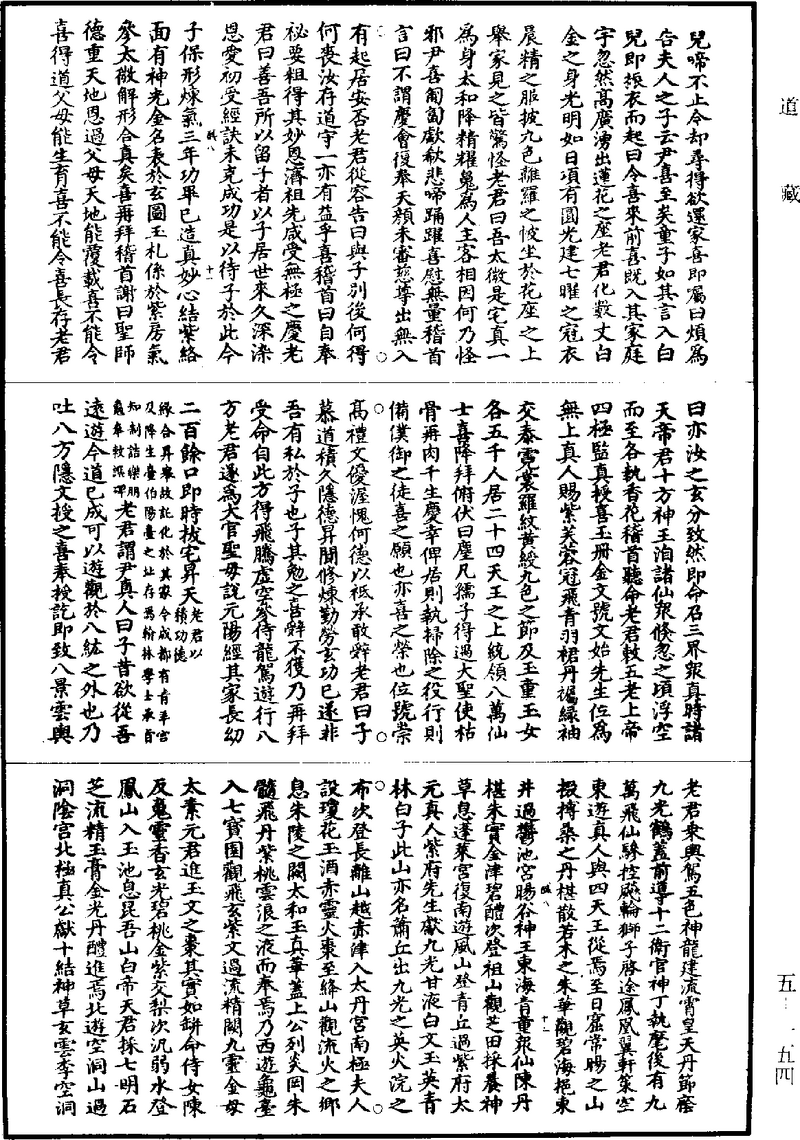 道藏
兒啼不止今却尋得欲還家喜即囑曰煩爲
告夫人之子云尹喜至矣童子如其言入白
兒即振衣而起曰令喜來前喜既入其家庭
宇忽然高廣湧出蓮花之座老君化數丈白
金之身光明如日項有圓光建七曜之冠衣
晨精之服披九色離羅之帔坐於花座之上
舉家見之皆驚怪老君曰吾太微是宅真一
爲身太和降精耀魄爲人主客相因何乃怪
邪尹喜匍匐獻欷悲啼踊躍喜慰無量稽首
言曰不謂慶會復奉天顏未審慈尊出無入
有起居安否老君從容告曰與子别後何得
何喪汝存道守一亦有益乎喜稽首曰自奉
祕要粗得其妙恩濟祖先咸受無極之慶老
君曰善吾所以留子者以子居世來久深染
恩愛初受經訣未克成功是以待子於此今
子保形煉氣三年功畢已造真妙心結紫絡
面有神光金名表於玄圖玉札係於紫房氣
參太微解形合真矣喜再拜稽首謝曰聖師
德重天地恩過父母天地能覆載喜不能令
喜得道父母能生育喜不能令喜長存老君
曰亦汝之玄分致然即命召三界衆真時諸
天帝君十方神王洎諸仙衆倏忽之頃浮空
而至各執香花稽首聽命老君敕五老上帝
四極監真授喜玉册金文號文始先生位爲
無上真人賜紫芙蓉冠飛青羽裙丹襦緑袖
交泰霓裳羅紋黄綬九色之節及玉童玉女
各五千人居二十四天王之上統領八萬仙
士喜降拜俯伏曰塵凡穤子得遇大聖使枯
骨再肉千生慶幸俾居則執掃除之役行則
備僕御之徒喜之願也亦喜之榮也位號崇
高禮文優渥愧何德以祗承敢辭老君曰子
慕道積久隱德昇聞修煉勤勞玄功已遂非
吾有私於子也子其勉之喜辭不獲乃再拜
受命自此方得飛騰虚空參侍龍駕遊行八
方老君遂爲大官聖母說元陽經其家長幼
二百餘口即時拔宅昇天老君以積功德
緣合昇舉故託化於其家今成都有青羊宫
及降生臺伯陽臺之址存焉翰林學士承旨
知制誥樂朋龜奉敕撰碑老君謂尹真人曰子昔欲從吾
遠遊今道已成可以遊觀於八紘之外也乃
吐八方隱文授之喜奉授訖即致八景雲輿
老君乘輿駕五色神龍建流霄皇天丹節蔭
九光鶴蓋前導十二衛官神丁執麾後有九
萬飛仙驂控飈輪獅子啓途鳳凰翼軒策空
東遊真人與四天王從焉至日窟常暘之山
掇搏桑之丹椹散若木之朱華觀碧海挹東
井過鬱池宫暘谷神王東海青童衆仙陳丹
椹朱實金津碧醴次登祖山觀芝田採養神
草息蓬萊宫復南遊風山登青丘過紫府太
元真人紫府先生獻九光甘液白文玉英青
林白子此山亦名蕭丘出九光之英火浣之
布次登長離山越赤津入太丹宫南極夫人
設瓊花玉酒赤靈火棗至絳山觀流火之鄉
息朱陵之闕太和玉真華蓋上公列炎岡朱
髓飛丹紫桃雲浪之液而奉焉乃西遊龜臺
入七寶園觀飛玄紫文過流精闕九靈金母
太素元君進玉文之棗其實如缾命侍女陳
反魂靈香玄光碧桃金紫交梨次汎弱水登
鳳山入玉池息昆吾山白帝天君採七明石
芝流精玉膏金光丹醴進焉北遊空洞山過
洞陰宫北極真公獻十結神草玄雲李空洞
五—一五四